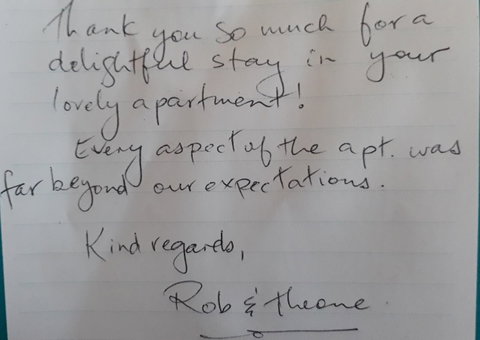 Thank you so much for a
delightful stay in your
lovely apartment!
Every aspect of the apt. was
far beyond our expectations.
Kind regards,
Rob & Theone